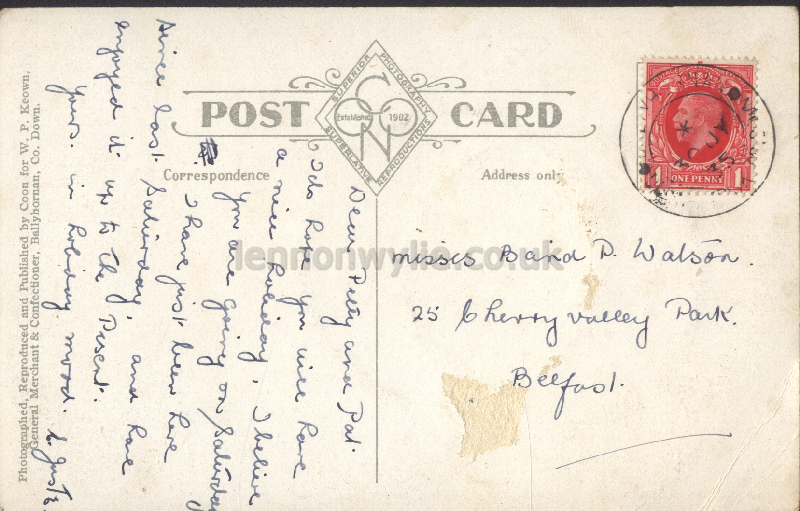 POST CARD
SUPERIOR PHOTOGRAPHY
Established 1902
SUPERLATIVE REPRODUCTIONS
Correspondence
Address only
Dear Betty and Pat.
I do hope you will have
a nice holiday, I believe
you are going on Saturday
I have just been here
since last Saturday, and have
enjoyed it up to the Present.
Yours. in holiday mood.
Misses B and P. Watson.
25 Cherryvalley Park.
Belfast.
ONE PENNY
1
Photographed, Reproduced and Published by Coon for W. P. Keown,
General Merchant & Confectioner, Ballyhornan, Co. Down.
lennonwylie.co.uk